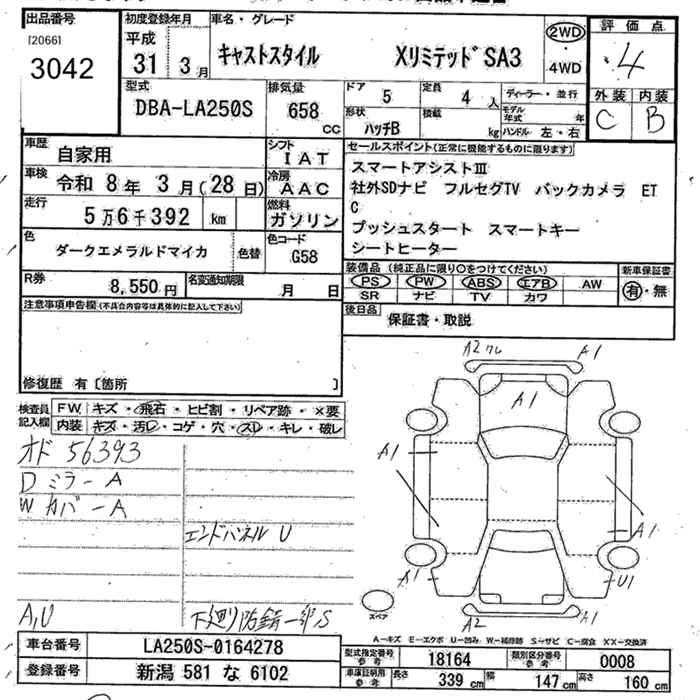 出品番号 初度登録年月 車名・グレード 評価点
[2066]
3042
平成
31 3月
キャストスタイル XリミテッドSA3
2WD
・
4WD
4
型式 排気量 ドア 定員 ディーラー・並行 外装 内装
DBA-LA250S 658 CC 5 4人 モデル年式 年
形状 積載 kg ハンドル 左・右 C B
ハッチB
車歴 シフト セールスポイント(正常に機能するものに限ります)
自家用 IAT
スマートアシストⅢ
車検 冷房
令和 8年 3月(28日) AAC
社外SDナビ フルセグTV バックカメラ ET
C
走行 燃料
5万6千392 km ガソリン
プッシュスタート スマートキー
シートヒーター
色 色替 色コード
ダークエメラルドマイカ G58
装備品(純正品に限り○をつけてください) 新車保証書
PS PW ABS エアB AW 有・無
SR ナビ TV カワ
R券 名変通知期限
8,550円 月 日
後日品
保証書・取説
注意事項申告欄(不具合内容等は具体的に記入して下さい)
修復歴 有〔箇所 〕
検査員記入欄
FW キズ・飛石・ヒビ割・リペア跡・×要
内装 キズ・汚レ・コゲ・穴・スレ・キレ・破レ
オド 56393
Dミラー A
Wカバー A
エンドパネル U
A,U 下廻り防錆一部S
A2 ワレ A1
A1
A1
A1
A1 U1
A2
スペア
A-キズ E-エクボ U-凹み W-補修跡 S-サビ C-腐食 XX-交換済
車台番号 LA250S-0164278
型式指定番号 参考 18164 類別区分番号 参考 0008
登録番号 新潟 581 な 6102
車庫証明用 参考 長さ 339 cm 幅 147 cm 高さ 160 cm